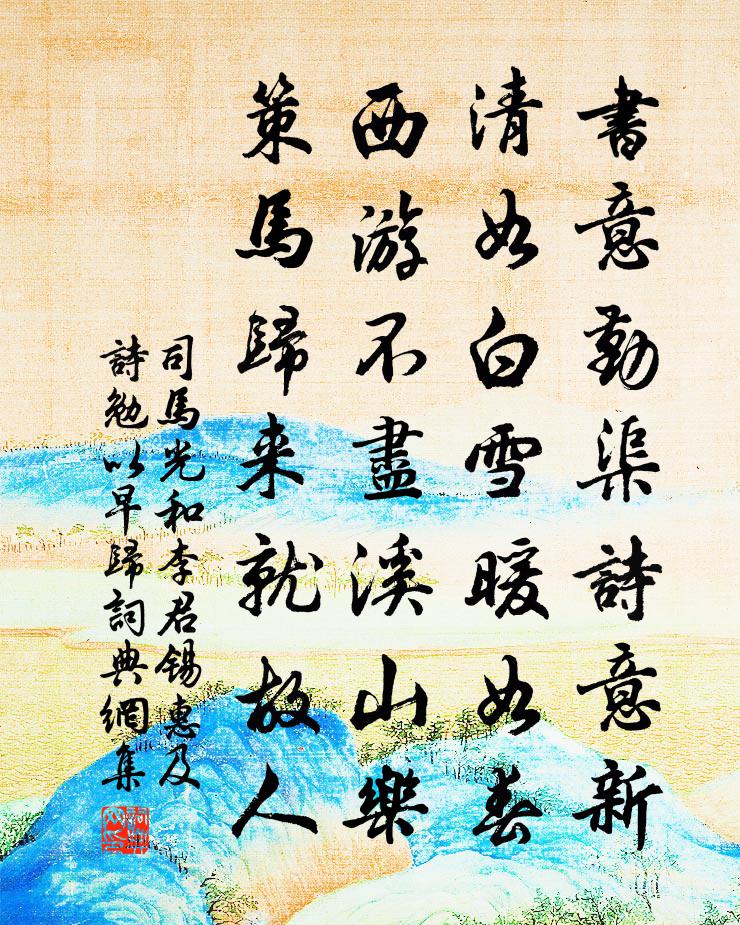 書意勤渠詩意新
清如白雪暖如春
西游不盡溪山樂
策馬歸来就故人
司馬光和李君錫惠及
詩勉以早歸詞典網集